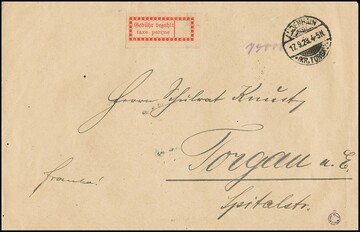 Gebühr bezahlt
taxe perçue
17.9.23. 4-5N.
(KR. TORGAU)
Herrn Schulrat Knust,
Torgau a. E.
franko!
Spitalstr.